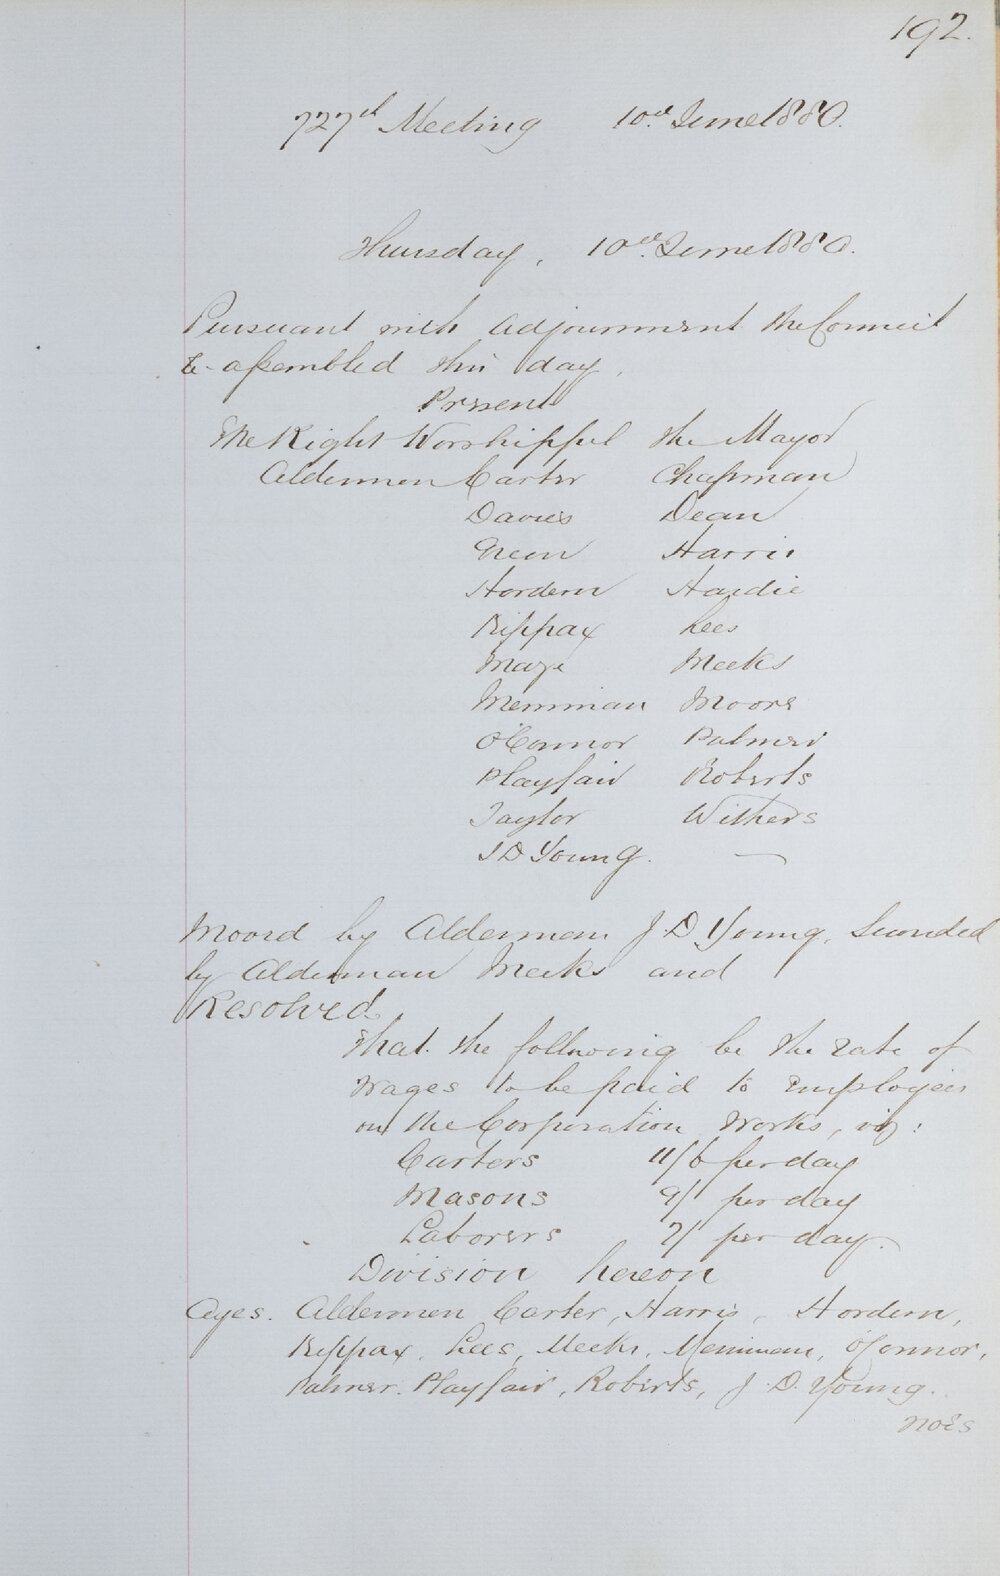 192.
727th Meeting 10th June 1880.
Thursday, 10th June 1880.
Pursuant with adjournment the Council
Re-assembled this day.
Present
The Right Worshipful the Mayor
Aldermen Carter Chapman
Davies Dean
Green Harris
Hordern Hardie
Kippax Lees
Maze Meeks
Merriman Moore
O'Connor Palmer
Playfair Roberts
Taylor Withers
J D Young. —
Moved by Alderman J. D. Young, Seconded
by Alderman Meeks and
Resolved
That the following be the rate of
Wages to be paid to Employees
on the Corporation Works, viz:
Carters 11/6 per day
Masons 9/ per day
Laborers 7/ per day.
Division hereon
Ayes. Aldermen Carter, Harris, Hordern,
Kippax, Lees, Meeks, Merriman, O'Connor,
Palmer, Playfair, Roberts, J. D. Young.
Noes